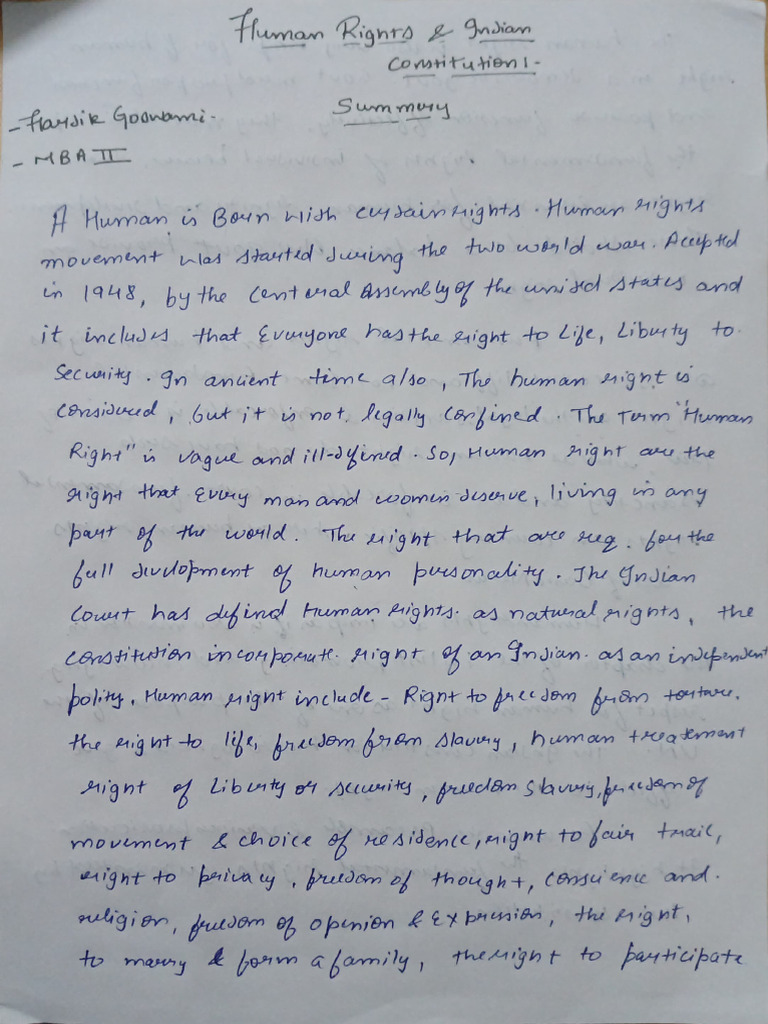 Human Rights & Indian
Constitution :-
Summary
- Hardik Goswami.
- MBA II
A Human is Born with certain rights. Human rights
movement was started during the two world war. Accepted
in 1948, by the Central Assembly of the united states and
it includes that Everyone has the right to Life, Liberty to
Security. In ancient time also, The human right is
considered, but it is not legally confined. The Term "Human
Right" is vague and ill-defined. So, Human right are the
right that Every man and women deserve, living in any
part of the world. The right that are req. for the
full development of human personality. The Indian
Court has defined Human rights. as natural rights, the
constitution incorporate right of an Indian. as an independent
polity. Human right include - Right to freedom from torture.
the right to life, freedom from slavery, human treatement
right of Liberty or security, freedom slavery, freedom of
movement & choice of residence, right to fair trail,
right to privacy, freedom of thought, conscience and.
religion, freedom of opinion & Expression, the right,
to marry & form a family, the right to participate